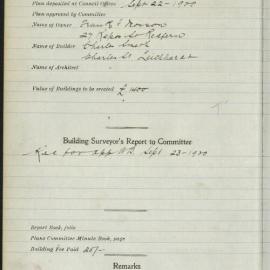 Plan deposited at Council Offices Sept 22 - 1920
Plan approved by Committee
Name of Owner Frank E
27 Redfern
Name of Builder Charles Smith
Charles St Leichhardt
Name of Architect
Value of Buildings to be erected £ 1400
Building Surveyor's Report to Committee
Rec for app Sept 23-1920
Report Book, folio
Plans Committee Minute Book, page
Building Fee Paid
Remarks